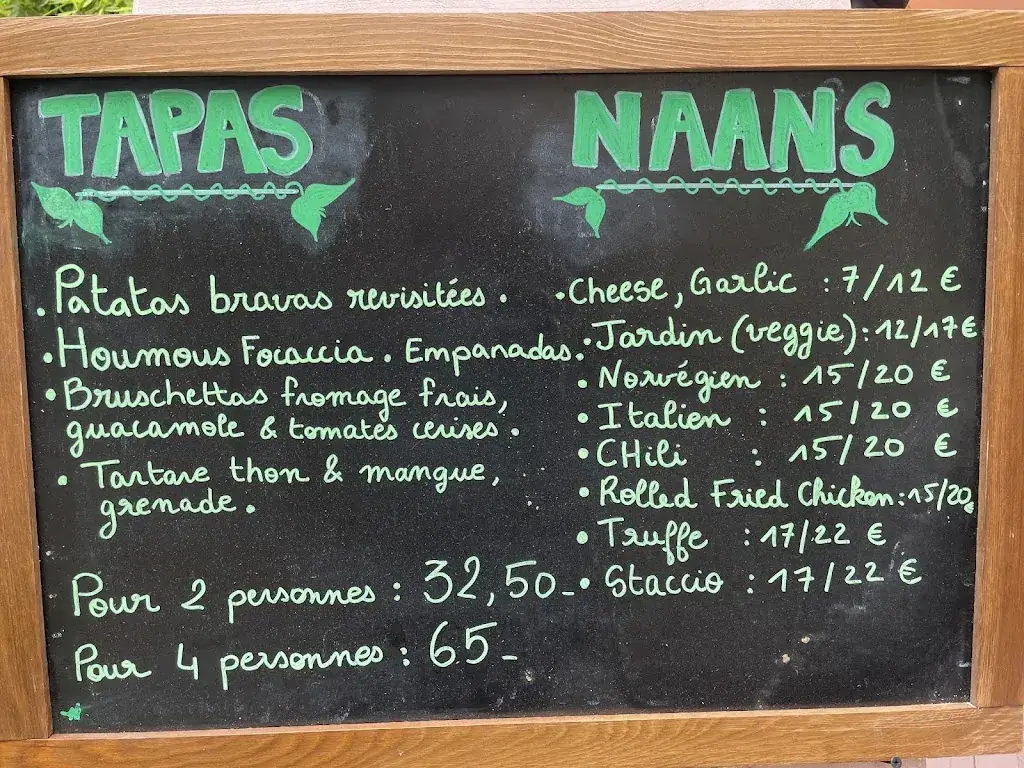 TAPAS
. Patatas bravas revisitées .
. Houmous Focaccia . Empanadas.
. Bruschettas fromage frais,
guacamole & tomates cerises .
. Tartare thon & mangue,
grenade .
Pour 2 personnes : 32,50_
Pour 4 personnes : 65_
NAANS
. Cheese, Garlic : 7/12 €
. Jardin (veggie) : 12/17 €
. Norvégien : 15/20 €
. Italien : 15/20 €
. CHili : 15/20 €
. Rolled Fried Chicken : 15/20€
. Truffe : 17/22 €
. Staccio : 17/22 €